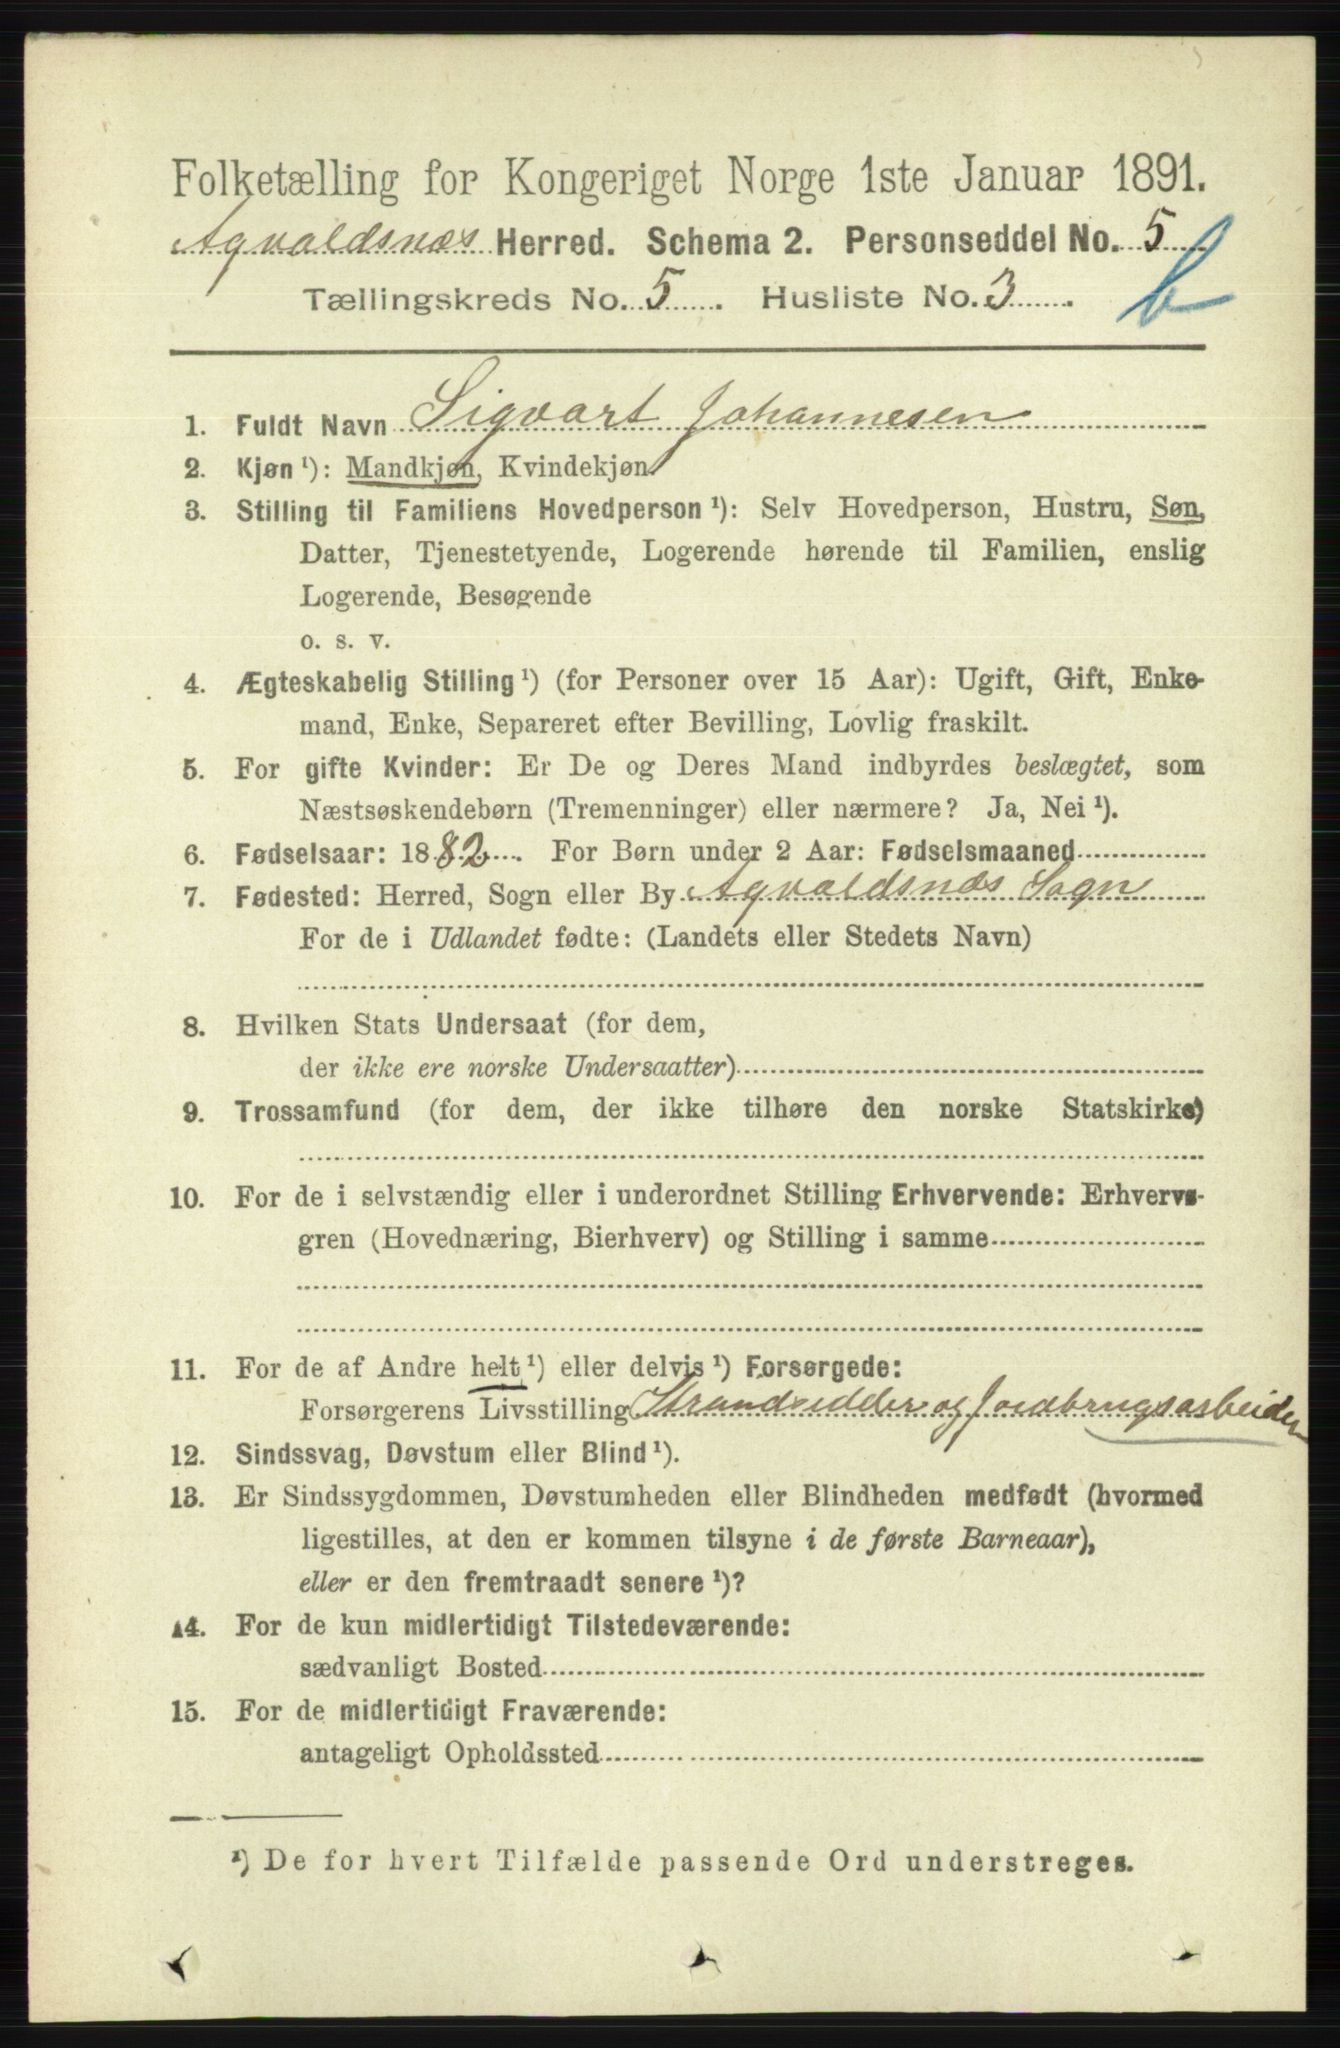 Folketælling for Kongeriget Norge 1ste Januar 1891.
Agvaldsnæs Herred. Schema 2. Personseddel No. 5
Tællingskreds No. 5. Husliste No. 3. b
1. Fuldt Navn Sigvart Johannesen
2. Kjøn ¹): Mandkjøn, Kvindekjøn.
3. Stilling til Familiens Hovedperson ¹): Selv Hovedperson, Hustru, Søn,
Datter, Tjenestetyende, Logerende hørende til Familien, enslig
Logerende, Besøgende
o. s. v.
4. Ægteskabelig Stilling ¹) (for Personer over 15 Aar): Ugift, Gift, Enke-
mand, Enke, Separeret efter Bevilling, Lovlig fraskilt.
5. For gifte Kvinder: Er De og Deres Mand indbyrdes beslægtet, som
Næstsøskendebørn (Tremenninger) eller nærmere? Ja, Nei ¹).
6. Fødselsaar: 1882. For Børn under 2 Aar: Fødselsmaaned
7. Fødested: Herred, Sogn eller By Agvaldsnæs Sogn
For de i Udlandet fødte: (Landets eller Stedets Navn)
8. Hvilken Stats Undersaat (for dem,
der ikke ere norske Undersaatter)
9. Trossamfund (for dem, der ikke tilhøre den norske Statskirke)
10. For de i selvstændig eller i underordnet Stilling Erhvervende: Erhvervs-
gren (Hovednæring, Bierhverv) og Stilling i samme
11. For de af Andre helt ¹) eller delvis ¹) Forsørgede:
Forsørgerens Livsstilling Strandsidder og Jordbrugsarbeider
12. Sindssvag, Døvstum eller Blind ¹).
13. Er Sindssygdommen, Døvstumheden eller Blindheden medfødt (hvormed
ligestilles, at den er kommen tilsyne i de første Barneaar),
eller er den fremtraadt senere ¹)?
14. For de kun midlertidigt Tilstedeværende:
sædvanligt Bosted
15. For de midlertidigt Fraværende:
antageligt Opholdssted
¹) De for hvert Tilfælde passende Ord understreges.